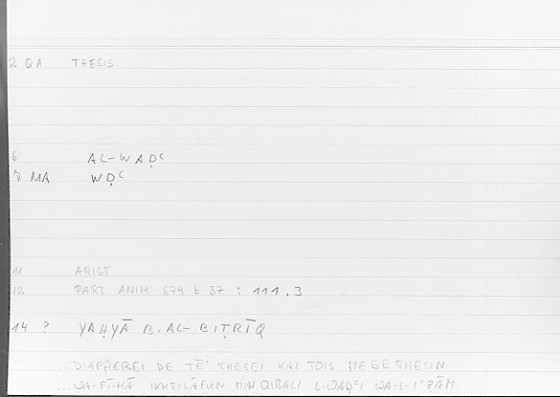 2 QA THESIS
6 AL-WAḌʿ
7 MA WḌʿ
11 ARIST
12. PART ANIM 679 b 37 : 111.3
14 ? YAḤYĀ B. AL-BIṬRĪQ
...DIAPHEREI DE TĒ' THESEI KAI TOIS MEGETHESIN
...WA-FĪ-HĀ IKHTILĀFUN MIN QIBALI L-WAḌʿI WA-L-IʿẒĀM.